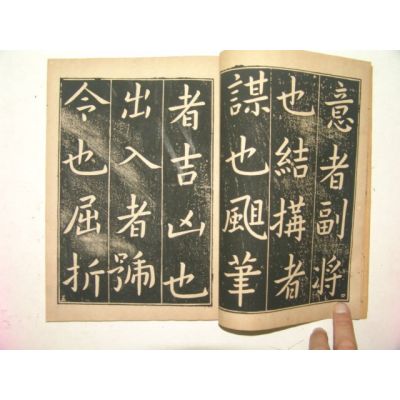 意者副將
也結搆者
謀也颺筆
者吉凶也
出入者號
令也屈折